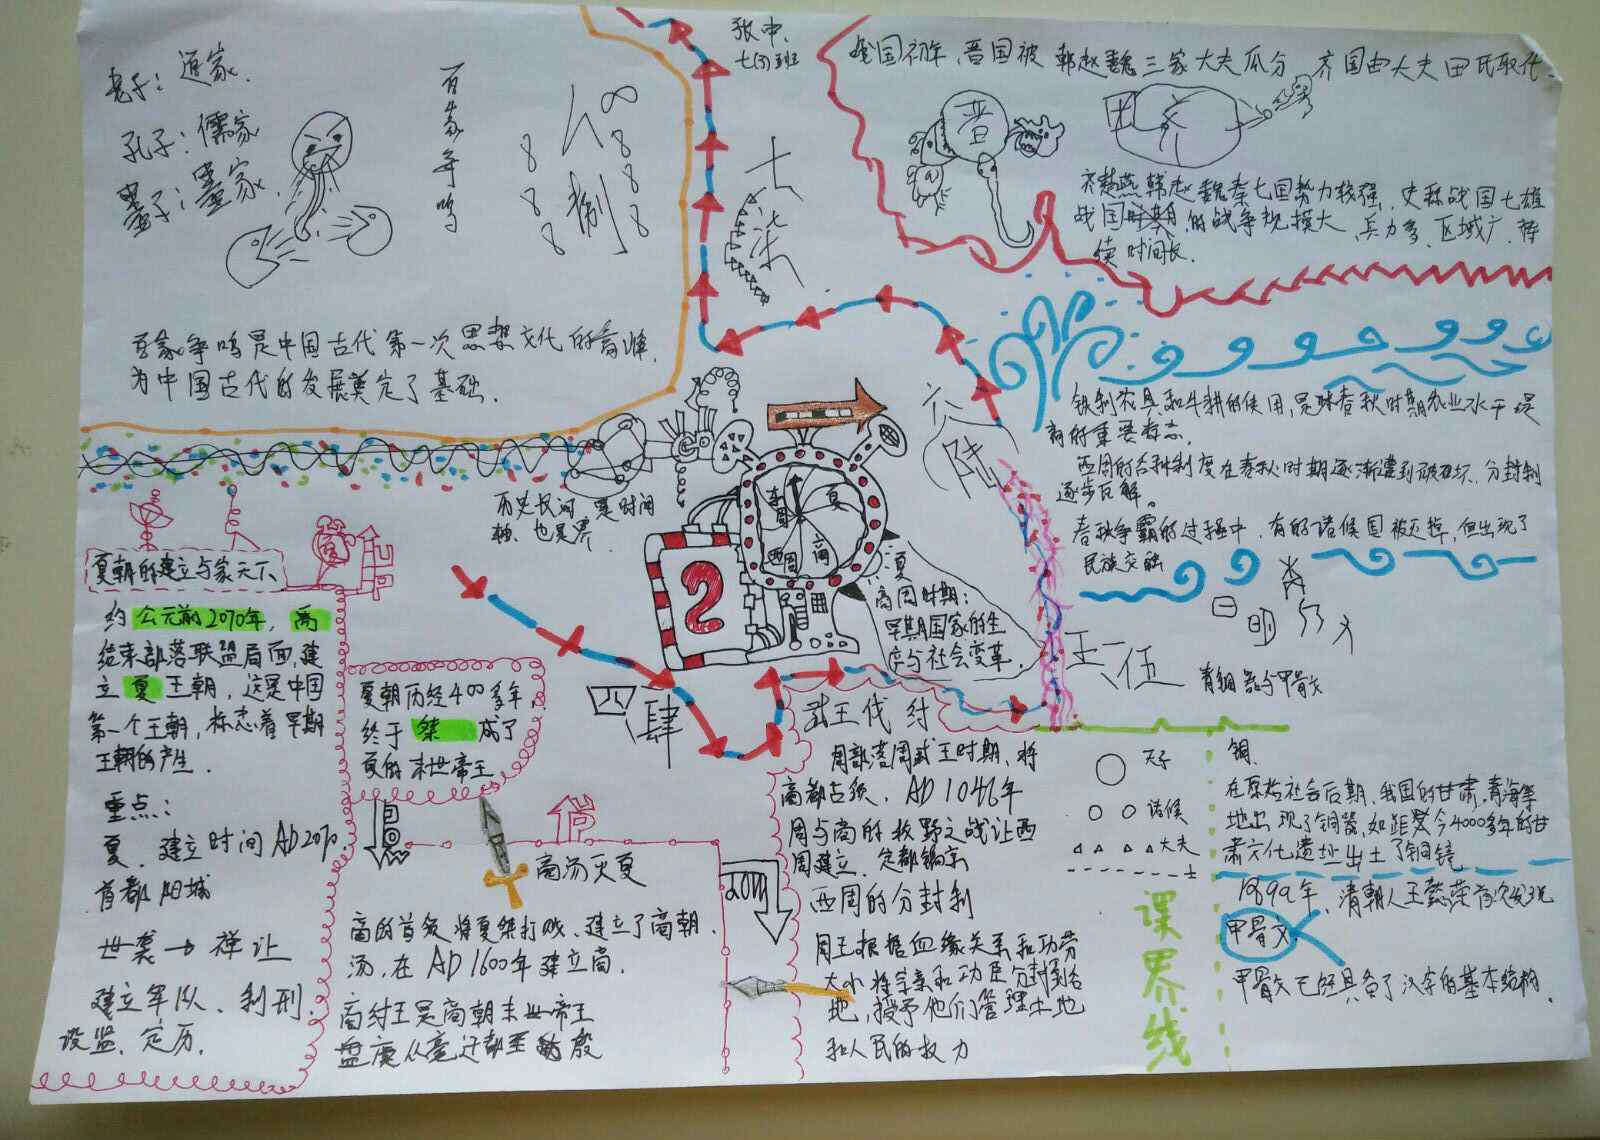 老子：道家.
孔子：儒家
墨子：墨家.
百家争鸣
八捌
百家争鸣是中国古代第一次思想文化的高峰.
为中国古代的发展奠定了基础.
张中.
七柒
战国初年,晋国被韩赵魏三家大夫瓜分 齐国由大夫田氏取代.
晋
齐楚燕韩赵魏秦七国势力较强,史称战国七雄
战国时期的战争规模大、兵力多、区域广、持
续时间长.
六陆
铁制农具和牛耕的使用,是春秋时期农业水平提
高的重要标志.
西周的各种制度在春秋时期逐渐遭到破坏、分封制
逐步瓦解。
春秋争霸的过程中,有的诸候国被灭掉,但出现了
民族交融
历史长河 是时间
轴、也是界
东周
夏
西周
商
2
夏
商周时期：
早期国家的生
产与社会变革.
夏朝的建立与家天下
商
约公元前2070年,禹
结束部落联盟局面,建
立夏王朝,这是中国
第一个王朝,标志着早期
王朝的产生.
重点：
夏.建立时间AD2070
首都 阳城
世袭→禅让
建立军队、制刑.
设监、定历.
夏朝历经400多年,
终于桀 成了
夏的末世帝王
四肆
商汤灭夏
商的首领将夏桀打败、建立了商朝.
汤,在AD1600年建立商.
商纣王是商朝末世帝王
盘庚从毫迁都至殷
武王伐纣
周部落周武王时期、将
商都占领、AD1046年
周与商的牧野之战让西
周建立、定都镐京
西周的分封制
周王根据血缘关系和功劳
大小将宗亲和功臣分封到各
地,授予他们管理土地
和人民的权力
五伍
日 明
青铜器与甲骨文
天子
诸候
大夫
士
课界线
铜.
在原始社会后期,我国的甘肃、青海等
地出现了铜器,如距今4000多年的甘
肃文化遗址出土了铜镜
1899年,清朝人王懿荣首次发现
甲骨文.
甲骨文已经具备了汉字的基本结构.